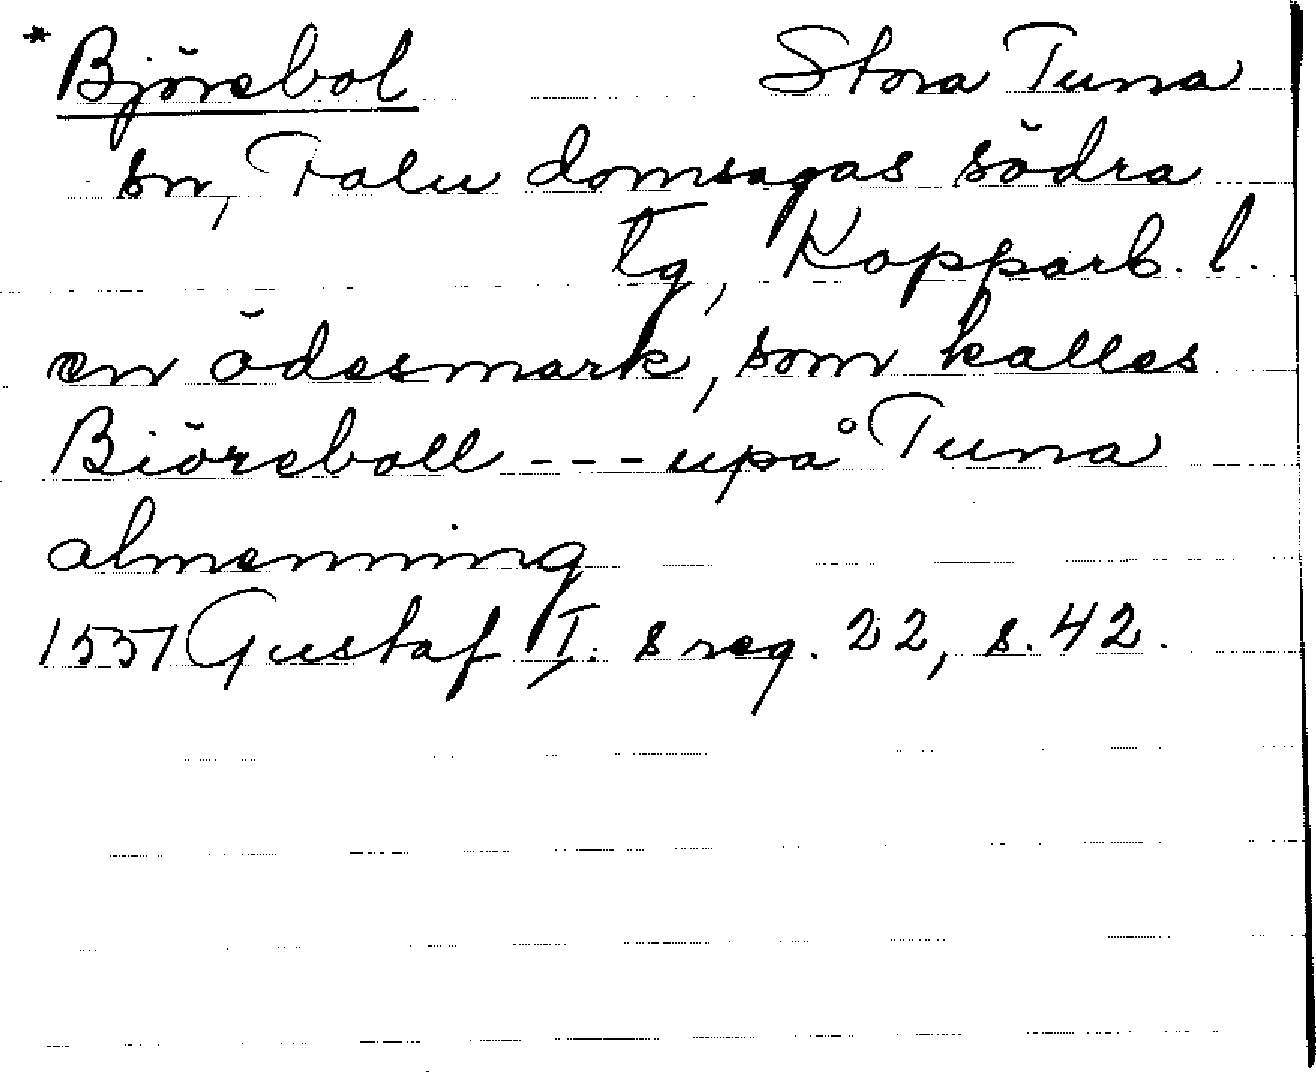 *Björebol Stora Tuna
sn, Falu domsagas södra
tg, Kopparb. l.
en ödesmark, som kalles
Biöreboll --- upå Tuna
almenning
1551 Gustaf I:s reg. 22, s. 42.